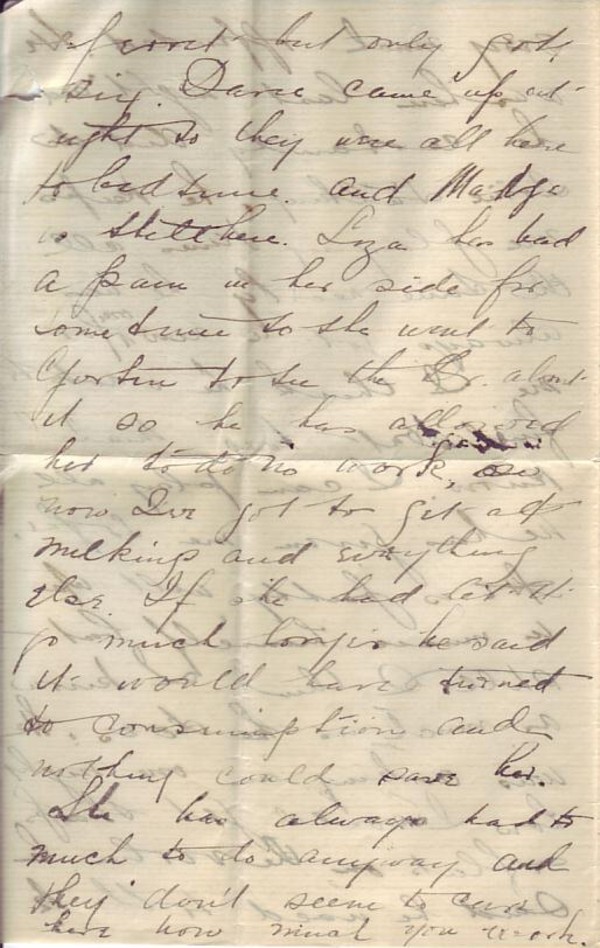 but only got
six. Dave came up out
right so they were all here
to bed time. and Madge
is still here. Liza has had
a pain in her side for
some time so she went to
to see the Dr. about
it so he has allowed
her to do no work, so
now I've got to git at
milkings and everything
else. If she had let it
go much longer he said
it would have turned
to consumption and
nothing could save her.
She has always had to
much to do anyway and
they don't seem to care
here how much you work.